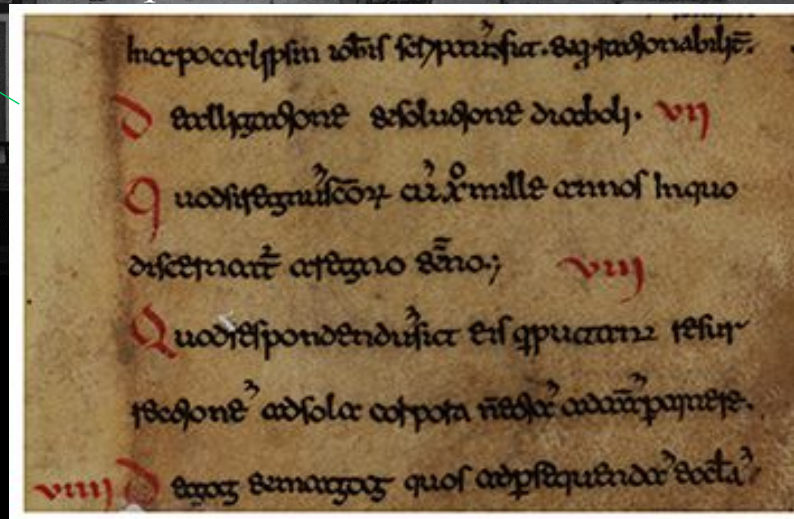 In apocalipsin iohis scriptū sit. & q rationabilit̄.
De alligatione & solutione diaboli. VII
Quod sit regnū scōr cū xp̄o mille annos In quo
discernat̄ a regno et̄no.; VIII
Quod respondendū sit eis q putant resur
rectionē ad sola corpora ad pertinere.
VIIII De gog & magog quos ad p̱sequendā eccl̄ā